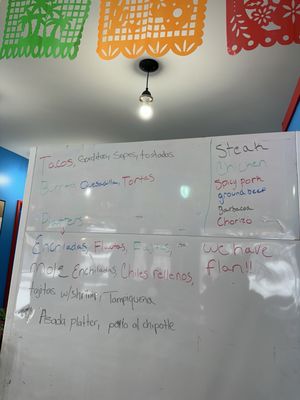 Tacos, Gorditas, Sopes, tostadas
Burritos Quesadillas, Tortas
Platters
Enchiladas, Flautas, Fajitas,
Mole Enchiladas, Chiles rellenos,
fajitas w/shrimp, Tampiquena
Asada platter, pollo al chipotle
Steak
Chicken
Spicy pork
ground beef
Barbacoa
Chorizo
we have
flan!!